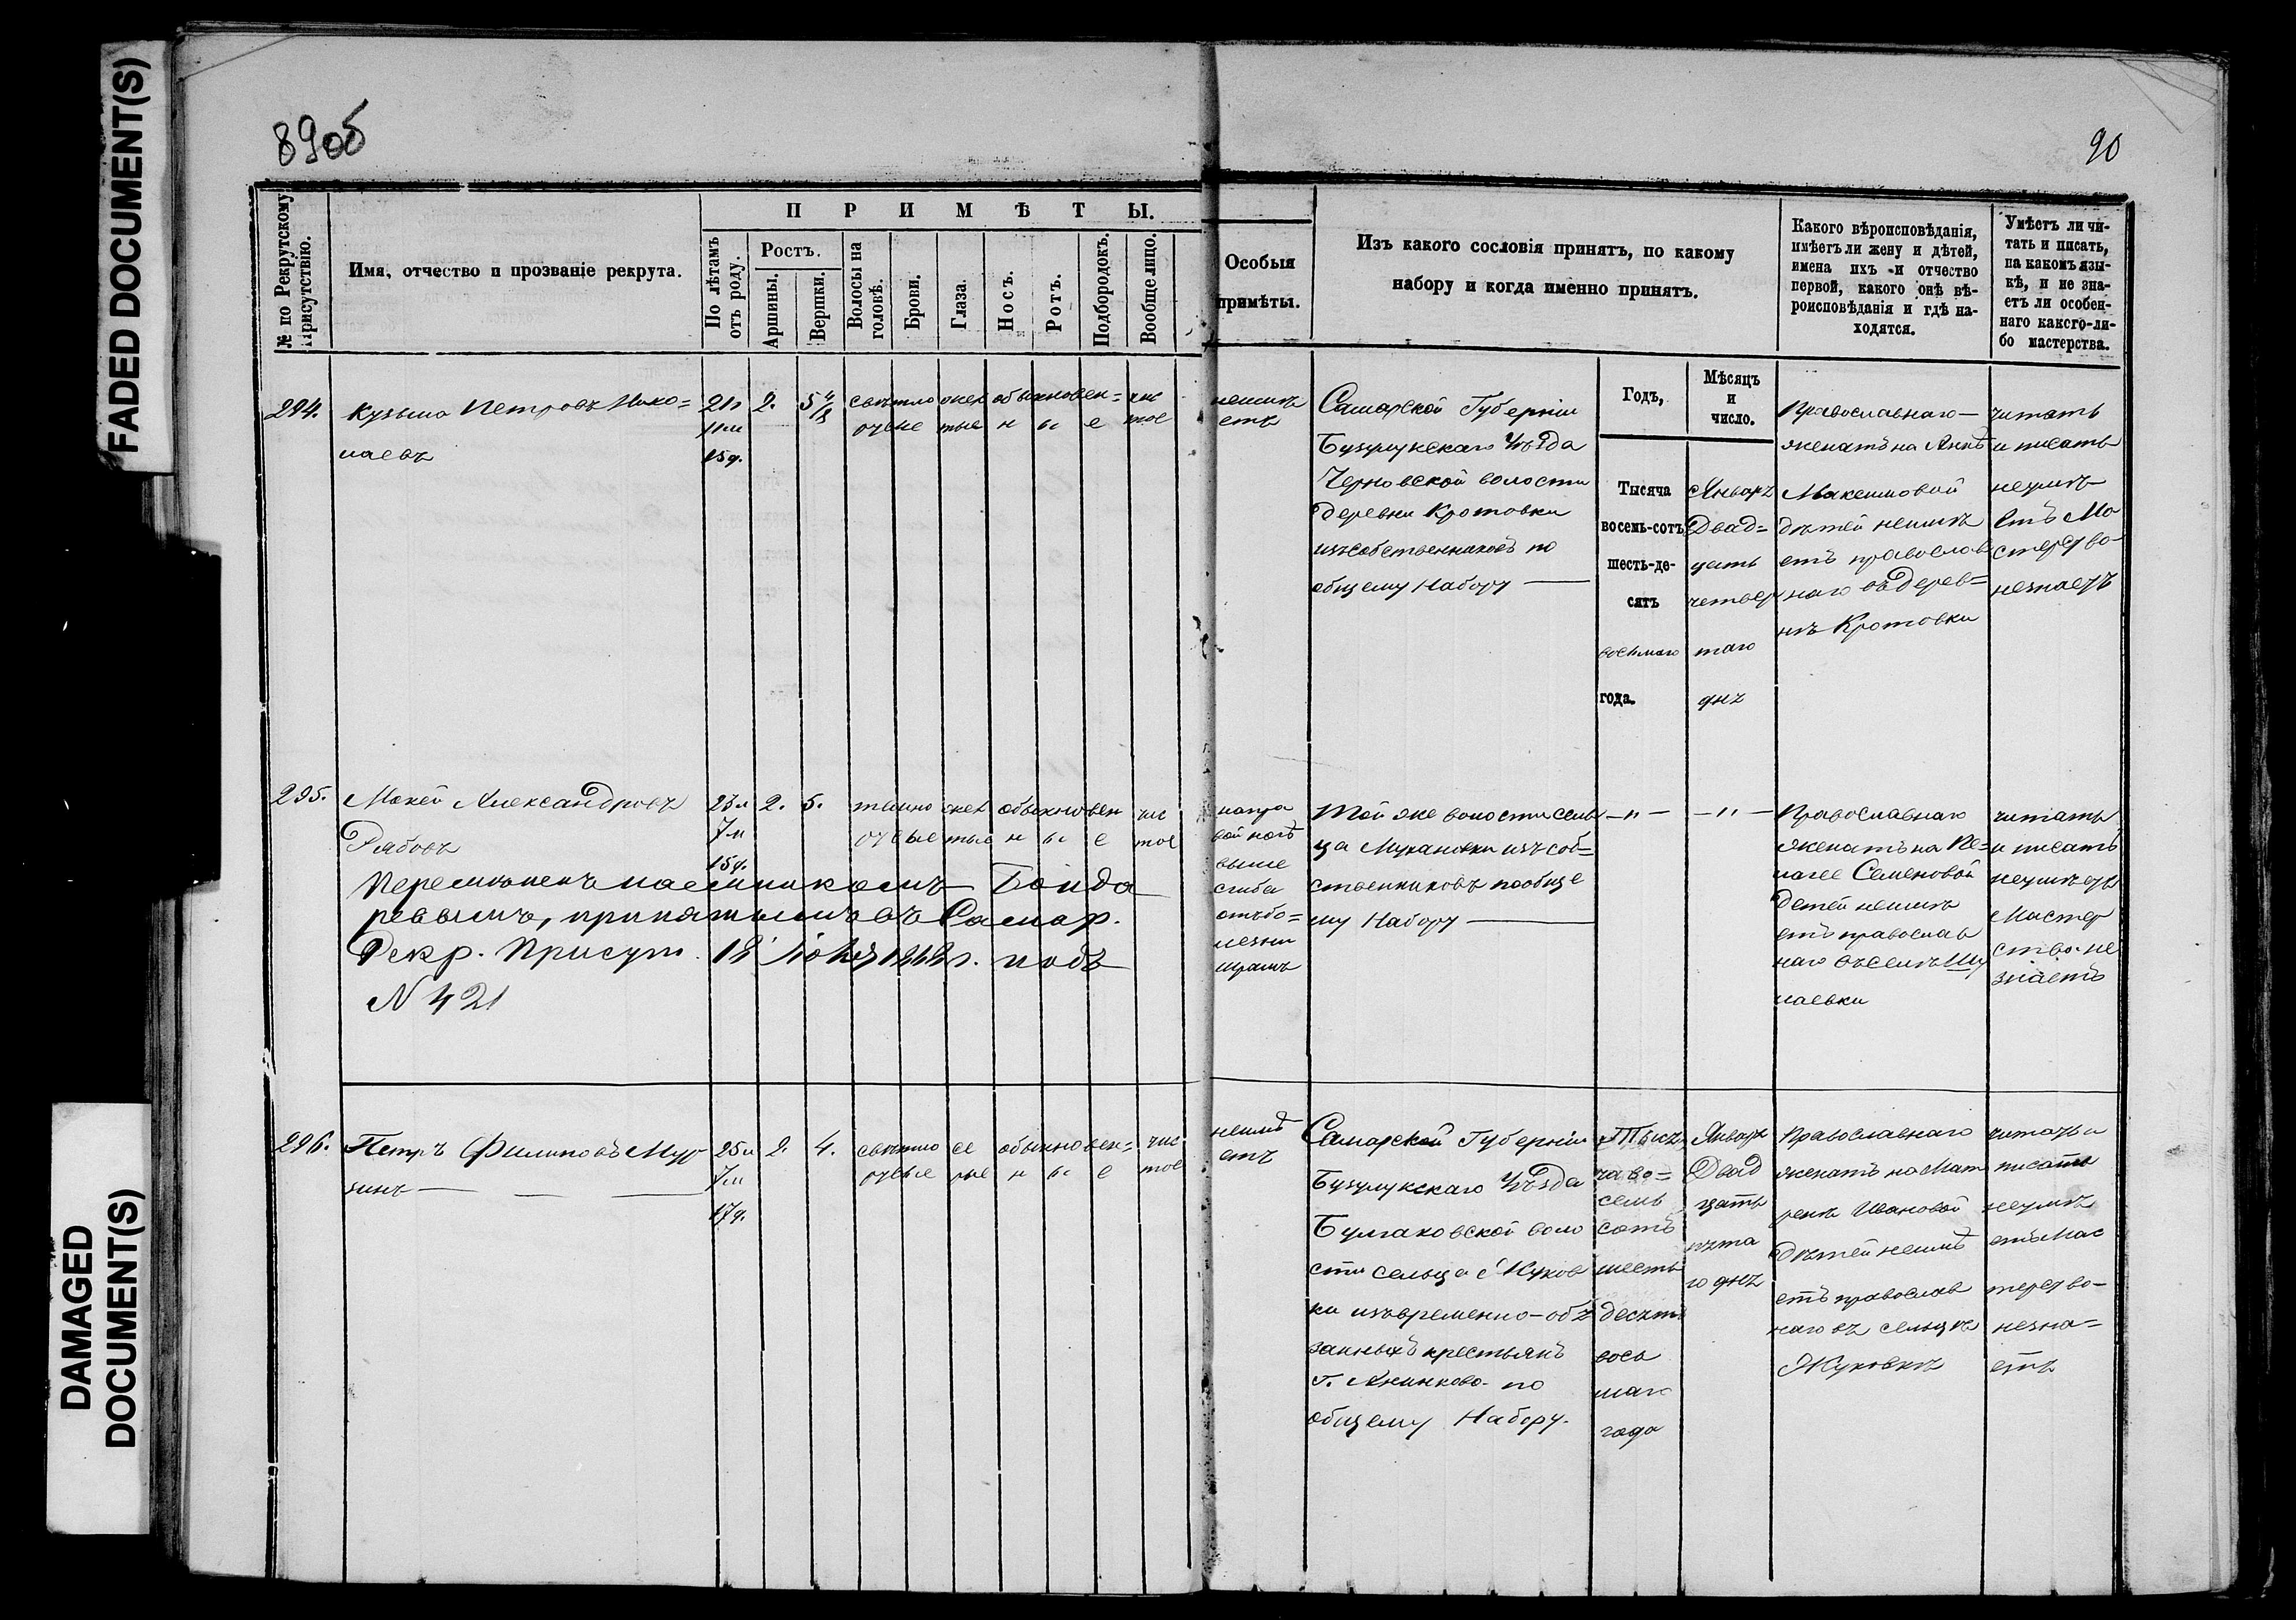 FADED DOCUMENT(S)
DAMAGED
DOCUMENT(S)
89об
90
№ по Рекрутскому
Присутствію.
Имя, отчество и прозваніе рекрута.
ПРИМѢТЫ.
По лѣтамъ
отъ роду.
Ростъ.
Аршины.
Вершки.
Волосы на
головѣ.
Брови.
Глаза.
Носъ.
Ротъ.
Подбородокъ.
Вообще лицо.
Особыя
примѣты.
Изъ какого сословія принятъ, по какому
набору и когда именно принятъ.
Какого вѣроисповѣданія,
имѣетъ ли жену и дѣтей,
имена ихъ и отчество
первой, какого онѣ вѣ-
роисповѣданія и гдѣ на-
ходятся.
Умѣетъ ли чи-
тать и писать,
на какомъ язы-
кѣ, и не зна-
етъ ли особен-
наго какого-ли-
бо мастерства.
294.
Кузьма Петровъ Нико=
лаевъ
21л
11м
15д.
2.
5 4/8
свѣтло
русые
жел
тые
обыкновен=
н ы е
чис
тое
неимѣ
етъ
Самарской Губерніи
Бузулукскаго Уѣзда
Черновской волости
деревни Кротовки
изъ собственниковъ по
общему Набору
Годъ,
Тысяча
восемь-сотъ
шесть-де-
сятъ
восьмаго
года.
Мѣсяцъ
и
число.
Январь
Двад=
цать
четвер
таго
дня
Православнаго
женатъ на Аннѣ
Максимовой
дѣтей неимѣ
етъ православ
наго въ дерев=
нѣ Кротовки
читать
и писать
неумѣ
етъ Ма
стерство
незнаетъ
295.
Мокей Александровъ
Рябовъ
23л
7м
15д.
2.
5.
темно
русые
жел
тые
обыкновен
н ы е
чис
тое
Перемѣненъ наемникомъ Бонда
ревымъ, принятымъ въ Самар.
Рекр. Присут. 18 Іюня 1868г. подъ
N 421
направой ногѣ
выше
сгиба
отъ бо=
лезни
шрамъ
Той же волости сель
ца изъ соб=
ственниковъ по обще
му Набору
— " —
— " —
Православнаго
женатъ на Пе=
лагее Семеновой
Детей неимѣ
етъ православ
наго въ селѣ
читать
и писать
неумѣетъ
Мастер
ство не
знаетъ
296.
Петръ Филиповъ Мур
зинъ
25л
7м
17д.
2.
4.
свѣтло
русые
се
рые
обыкновен=
н ы е
чис
тое
неимѣ
етъ
Самарской Губерніи
Бузулукскаго Уѣзда
Булгаковской воло
сти сельца Жуков
ки изъ временно-обя
занныхъ крестьянъ
г. Аненкова по
общему Набору.
Тыся
ча во=
семь
сотъ
шесть
десятъ
вось
маго
года
Январь
Двад
цать
пята
го дня
Православнаго
женатъ на Мат
рене Ивановой
Дѣтей неимѣ
етъ православ
наго въ сельцѣ
Жуковкѣ
читать и
писать
неумѣ
етъ Мас
терство
незна=
етъ